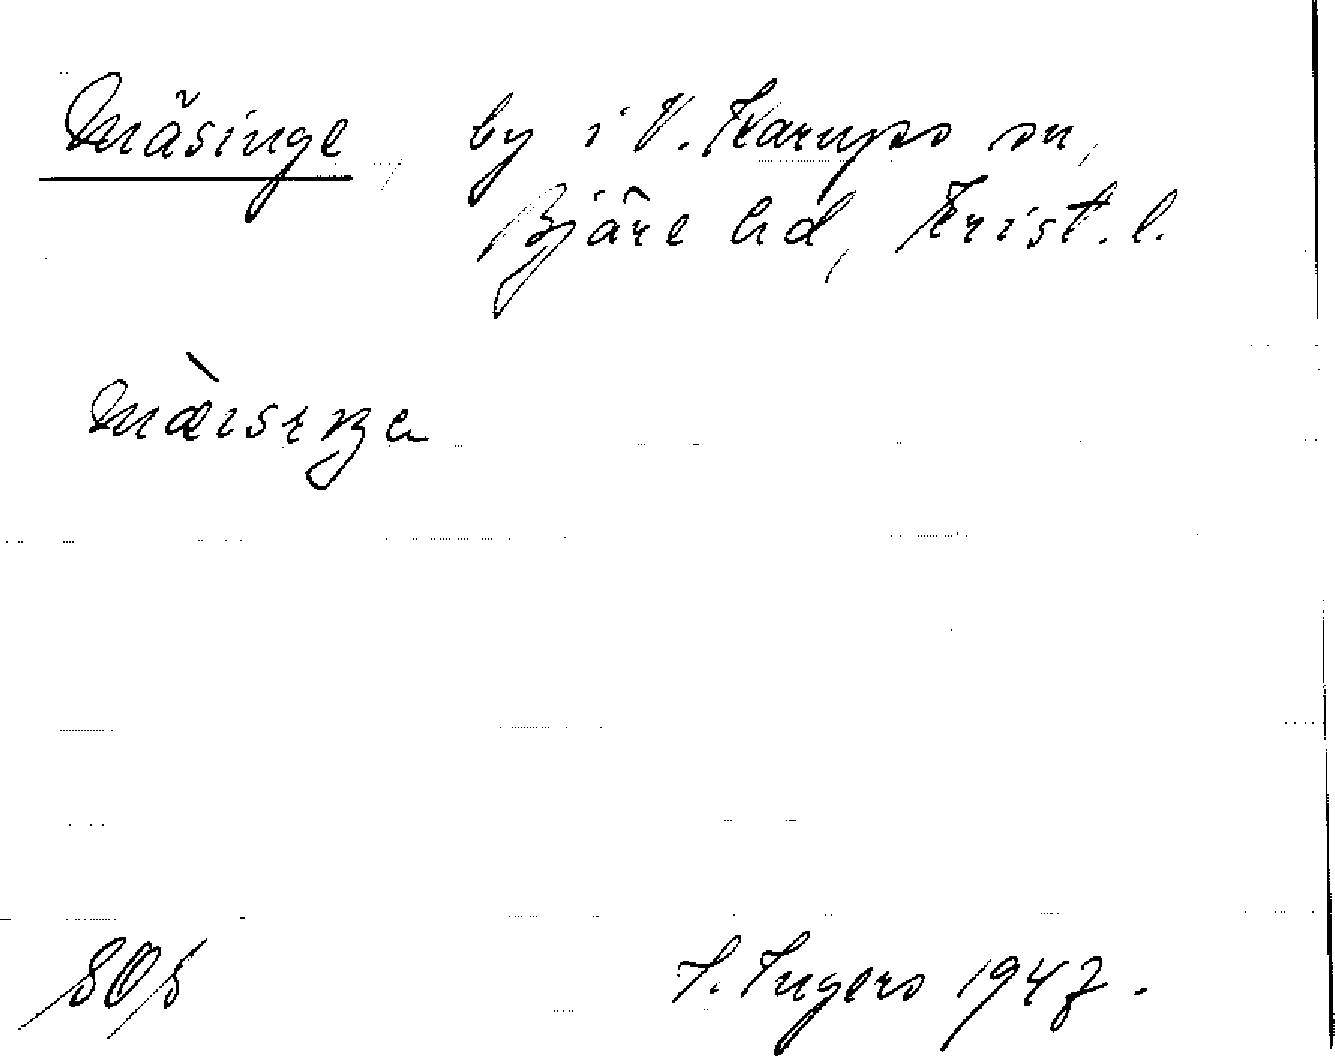 Mäsinge, by i V. Karups sn,
Bjäre hd, Krist. l.
SOS I. Ingers 1947.